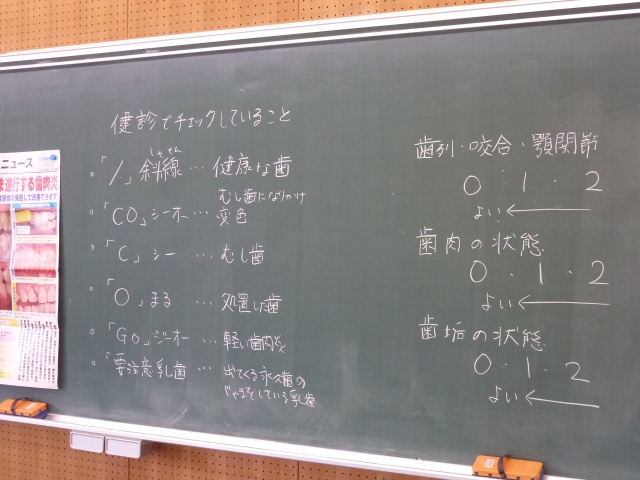 健診でチェックしていること
しゃせん
・「/」斜線 … 健康な歯
むし歯になりかけ
・「CO」シーオー … 変色
・「C」シー … むし歯
・「O」まる … 処置した歯
・「GO」ジーオー … 軽い歯肉炎
・「要注意乳歯 … 出てくる永久歯の
じゃまをしている乳歯
歯列・咬合・顎関節
0 ・ 1 ・ 2
よい ←
歯肉の状態
0 ・ 1 ・ 2
よい ←
歯垢の状態
0 ・ 1 ・ 2
よい ←
ニュース
進行する歯肉炎